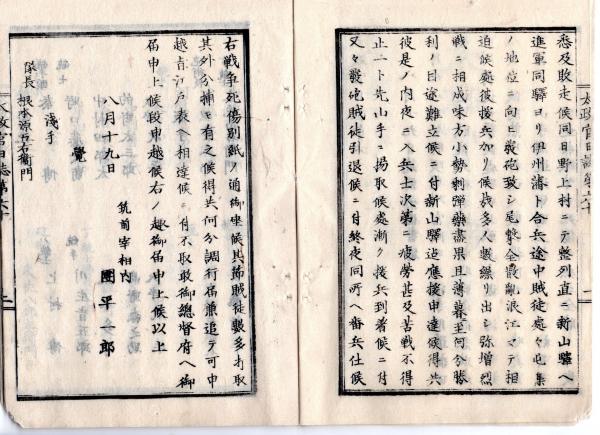 悉及敗走候同日野上村ニテ整列直ニ新山驛ヘ
進軍同驛ヨリ伊州藩ト合兵途中賊徒處々屯集
ノ地位ニ向ヒ發砲致シ尾撃会散亂浪江マテ相
迫候處彼援兵加リ候哉多人數繰リ出シ弥増烈
戰ニ相成味方小勢剰彈藥盡果且薄暮至何分勝
利ノ目途難立候ニ付新山驛迄應援申達候得共
彼是ノ内夜ニ入兵士次第ニ疲勞甚及苦戰不得
止一ト先山手ニ揚取候處漸ク援兵到着候ニ付
又々發砲賊徒引退候ニ付終夜同所ヘ番兵仕候
太政官日誌第六十
一
右戰争死傷別紙ノ通御座候其節賊徒數多打取
其外分捕モ有之候得共何分調行届兼追テ可申
越旨江戸表ヘ相達候ニ付不取敢御總督府ヘ御
届申上候段申越候右ノ趣御届申上候以上
八月十九日
筑前宰相内
團平一郎
覺
淺手
隊長
根本源五右衛門
太政官日誌第六十
二